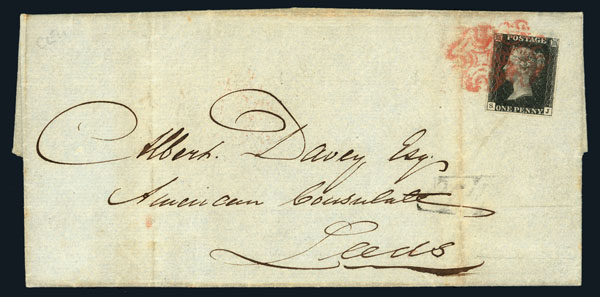 POSTAGE
S ONE PENNY J
Albert. Davey Esq.
American Consulate
Leeds